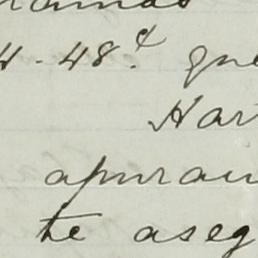 4.48.¢ que
Har
apuran
te aseg